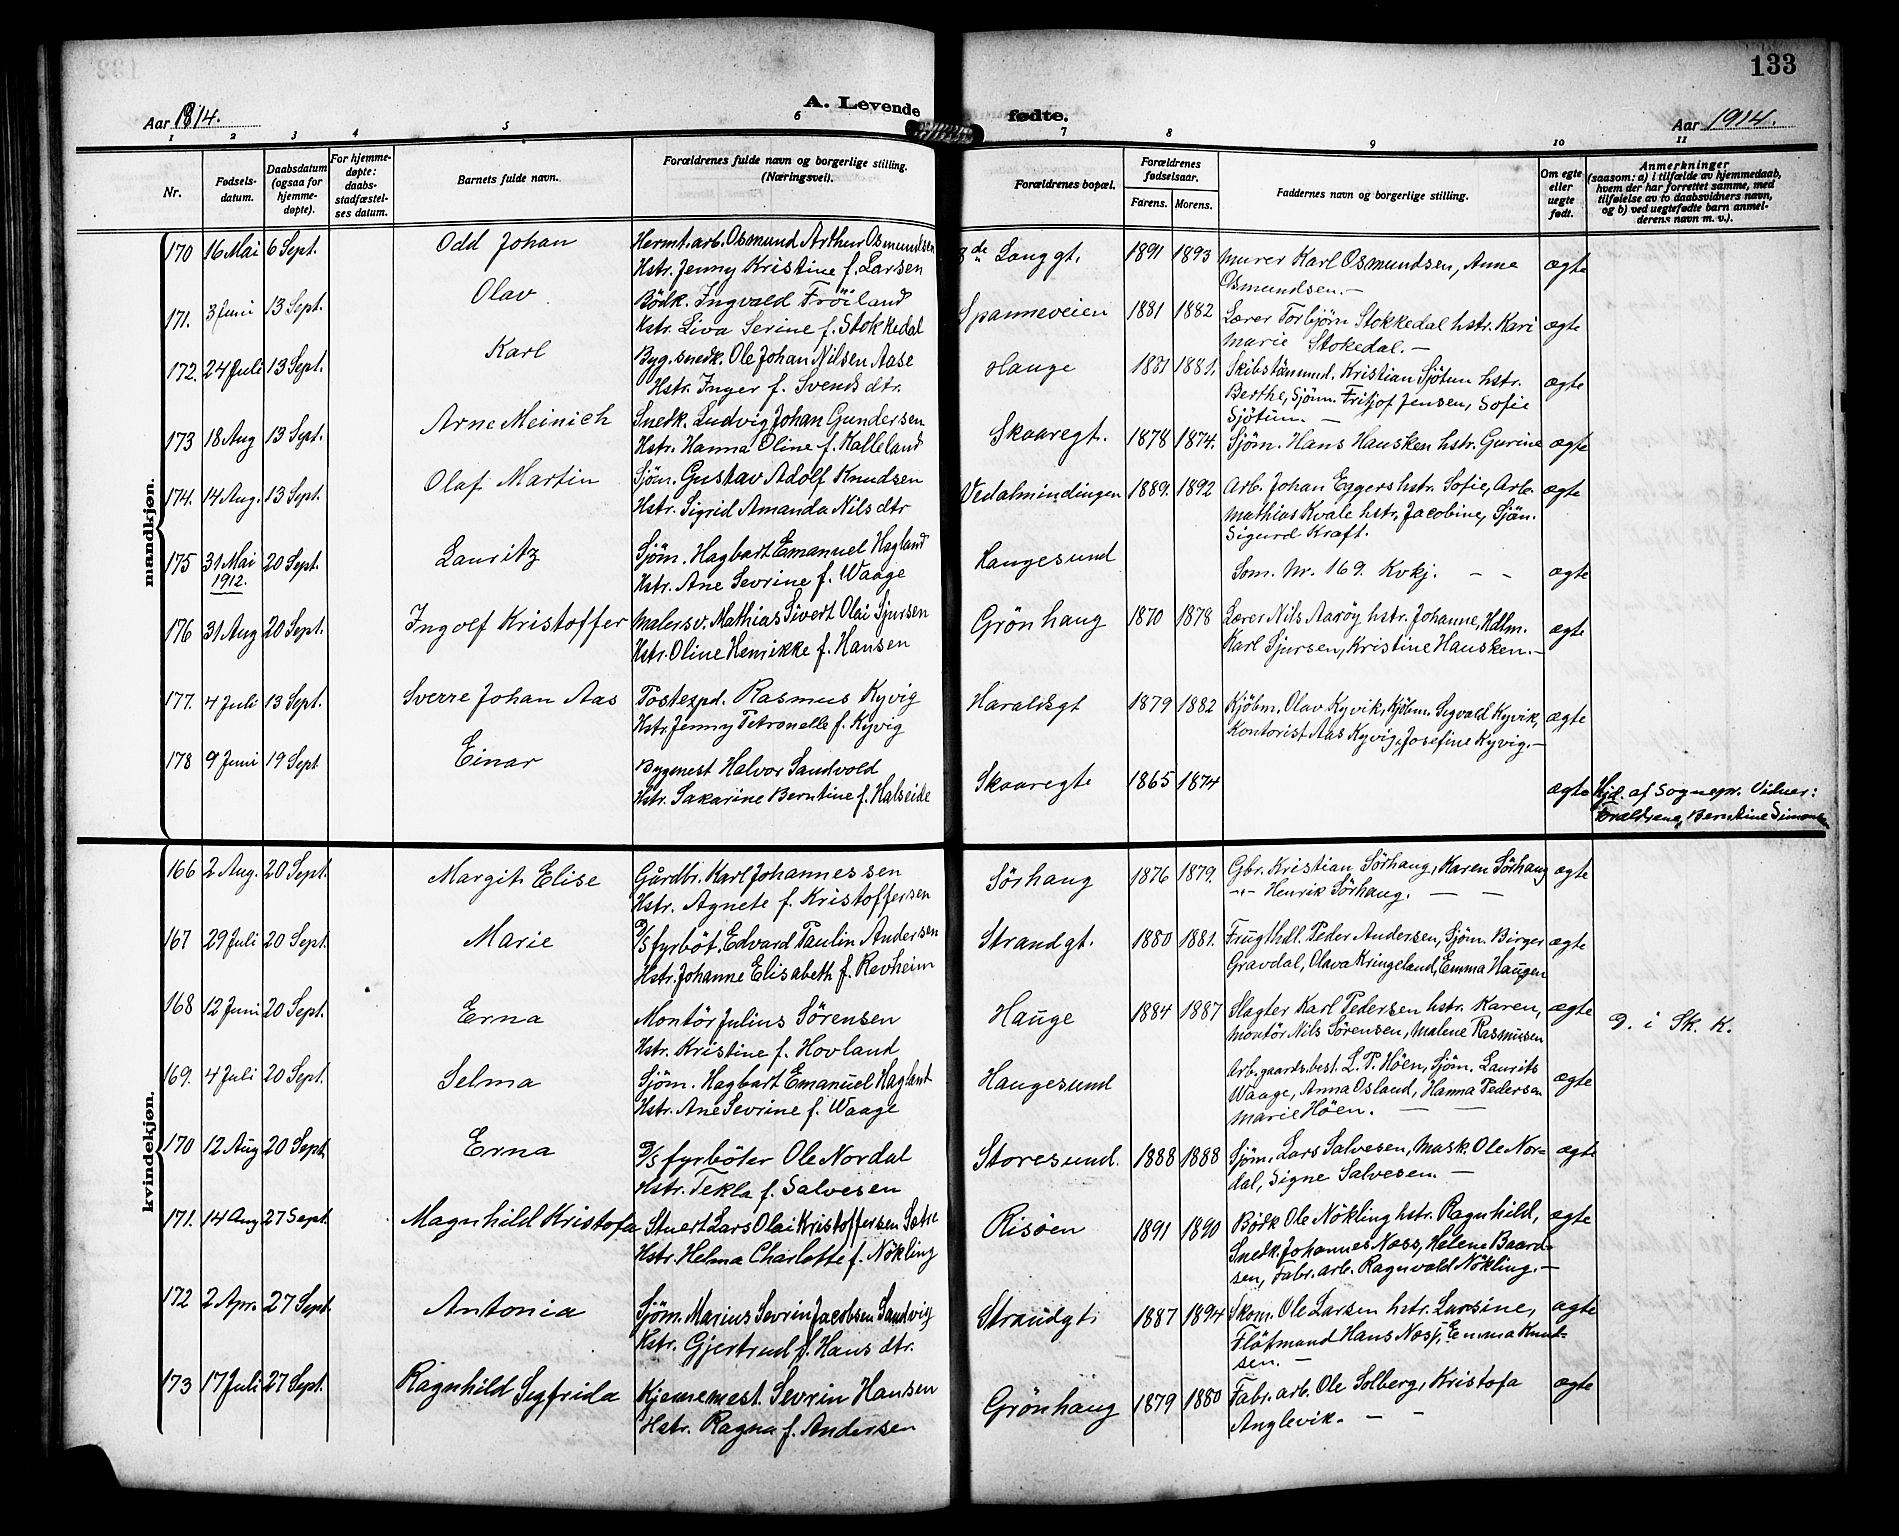 133
Aar 1914.
A. Levende fødte.
Aar 1914.
1 2 3 4 5 6 7 8 9 10 11
Nr.
Fødsels-
datum.
Daabsdatum
(ogsaa for
hjemme-
døpte).
For hjemme-
døpte:
daabs-
stadfæstel-
ses datum.
Barnets fulde navn.
Forældrenes fulde navn og borgerlige stilling.
(Næringsvei).
Forældrenes bopæl.
Forældrenes
fødselsaar.
Farens. Morens.
Faddernes navn og borgerlige stilling.
Om egte
eller
uegte
født.
Anmerkninger
(saasom: a) i tilfælde av hjemmedaab,
hvem der har forrettet samme, med
tilføielse av to daabsvidners navn,
og b) ved uegtefødte barn anmel-
derens navn m. v.).
mandkjøn.
170 16 Mai 6 Sept. Odd Johan Hermt. arb. Osmund Arthur Osmundsen 8de Langgt. 1891 1893 Murer Karl Osmundsen, Anna ægte
Hstr. Jenny Kristine f. Larsen Osmundsen.-
171. 3 Juni 13 Sept. Olav Bødk. Ingvald Fröiland Spanneveien 1881 1882 Lærer Torbjørn Stokkedal hstr. Kari ægte
Hstr. Liva Serine f. Stokkedal Marie Stokedal.-
172. 24 Juli 13 Sept. Karl Byg. snedk. Ole Johan Nilsen Aase Hauge 1881 1881. Skibstömmd. Kristian Sjötun hstr. ægte
Hstr. Inger f. Svends dtr. Berthe, Sjöm. Fritjof Jensen, Sofie
Sjötun. -
173 18 Aug 13 Sept. Arne Meinich Snedk. Ludvig Johan Gundersen Skaaregt. 1878 1874. Sjöm. Hans Hausken hstr. Gurine ægte
Hstr. Hanna Oline f. Kalleland
174. 14 Aug. 13 Sept. Olaf Martin Sjöm. Gustav Adolf Knudsen Vedalmindingen 1889. 1892 Arb. Johan Eggers hstr. Sofie, Arb. ægte
Hstr. Sigrid Amanda Nils dtr Mathias Kvale hstr. Jacobine, Sjöm.
Sigurd Kraft.
175 31 Mai 20 Sept. Lauritz Sjöm. Hagbart Emanuel Hagland Haugesund Som. Nr. 169. Kvkj. - - ægte
1912. Hstr. Ane Sevrine f. Waage
176 31 Aug 20 Sept. Ingolf Kristoffer Malersv. Mathias Sivert Olai Sjursen Grönhaug 1870 1878 Lærer Nils Aaröy hstr. Johanne, Hdlm. ægte
Hstr. Oline Henrikke f. Hansen Karl Sjursen, Kristine Hausken.-
177. 4 Juli 13 Sept. Sverre Johan Aas Postexpd. Rasmus Kyvig Haraldsgt 1879 1882 Kjöbm. Olav Kyvik, Kjöbm. Sigvald Kyvik, ægte
Hstr. Jenny Petronelle f. Kyvig Kontorist Aas Kyvig, Josefine Kyvig.-
178 9 Juni 19 Sept Einar Bygmest Halvor Sandvold Skaaregte 1865 1874 ægte Hjd. af Sognepr. Vidner:
Hstr. Sakarine Berntine f. Halseide Berntine Simons
kvindekjøn.
166 2 Aug. 20 Sept. Margit Elise Gårdbr. Karl Johannessen Sörhaug 1876 1879. Gbr. Kristian Sörhaug, Karen Sörhaug ægte
Hstr. Agnete f. Kristoffersen -"- Henrik Sörhaug. - -
167 29 Juli 20 Sept. Marie D/S fyrböt. Edvard Paulin Andersen Strandgt. 1880 1881. Frugthdl. Peder Andersen, Sjöm. Birger ægte
Hstr. Johanne Elisabeth f. Revheim Gravdal, Olava Kringeland, Emma Haugen
168 12 Juni 20 Sept. Erna Montör Julius Sörensen Hauge 1884 1887 Slagter Karl Pedersen hstr. Karen, ægte D. i Sk. K.
Hstr. Kristine f. Hovland Montör Nils Sörensen, Malene Rasmusen
169. 4 Juli 20 Sept. Selma Sjöm. Hagbart Emanuel Hagland Haugesund Arb. gaards.best. L. P. Höen, Sjöm. Laurits ægte
Hstr. Ane Sevrine f. Waage Waage, Anna Osland, Hanna Pedersen
Marie Höen. - -
170 12 Aug 20 Sept. Erna D/S fyrböter Ole Nordal Storesund. 1888 1888 Sjöm. Lars Salvesen, Mask. Ole Nor- ægte
Hstr. Tekla f. Salvesen dal, Signe Salvesen. -
171. 14 Aug 27 Sept. Magnhild Kristofa Stuert Lars Olai Kristoffersen Sætre Risöen 1891 1890 Bödk Ole Nökling hstr. Ragnhild, ægte
Hstr. Helma Charlotte f. Nökling Snedk. Johannes Næss, Helene Baard-
sen, Fabr. arb. Ragnvald Nökling.-
172 2 Apr. 27 Sept. Antonia Sjöm. Marius Sevrin Jacobsen Sandvig Strandgt. 1887 1894 Skom. Ole Larsen hstr. Larsine, ægte
Hstr. Gjertrud f. Hans dtr. Flötmand Hans Næss, Emma Knut-
sen. -
173 17 Juli 27 Sept. Ragnhild Segfrida Kjennemest. Sevrin Hansen Grönhaug 1879 1880 Fabr. arb. Ole Solberg, Kristofa ægte
Hstr. Ragna f. Andersen Anglevik. - -